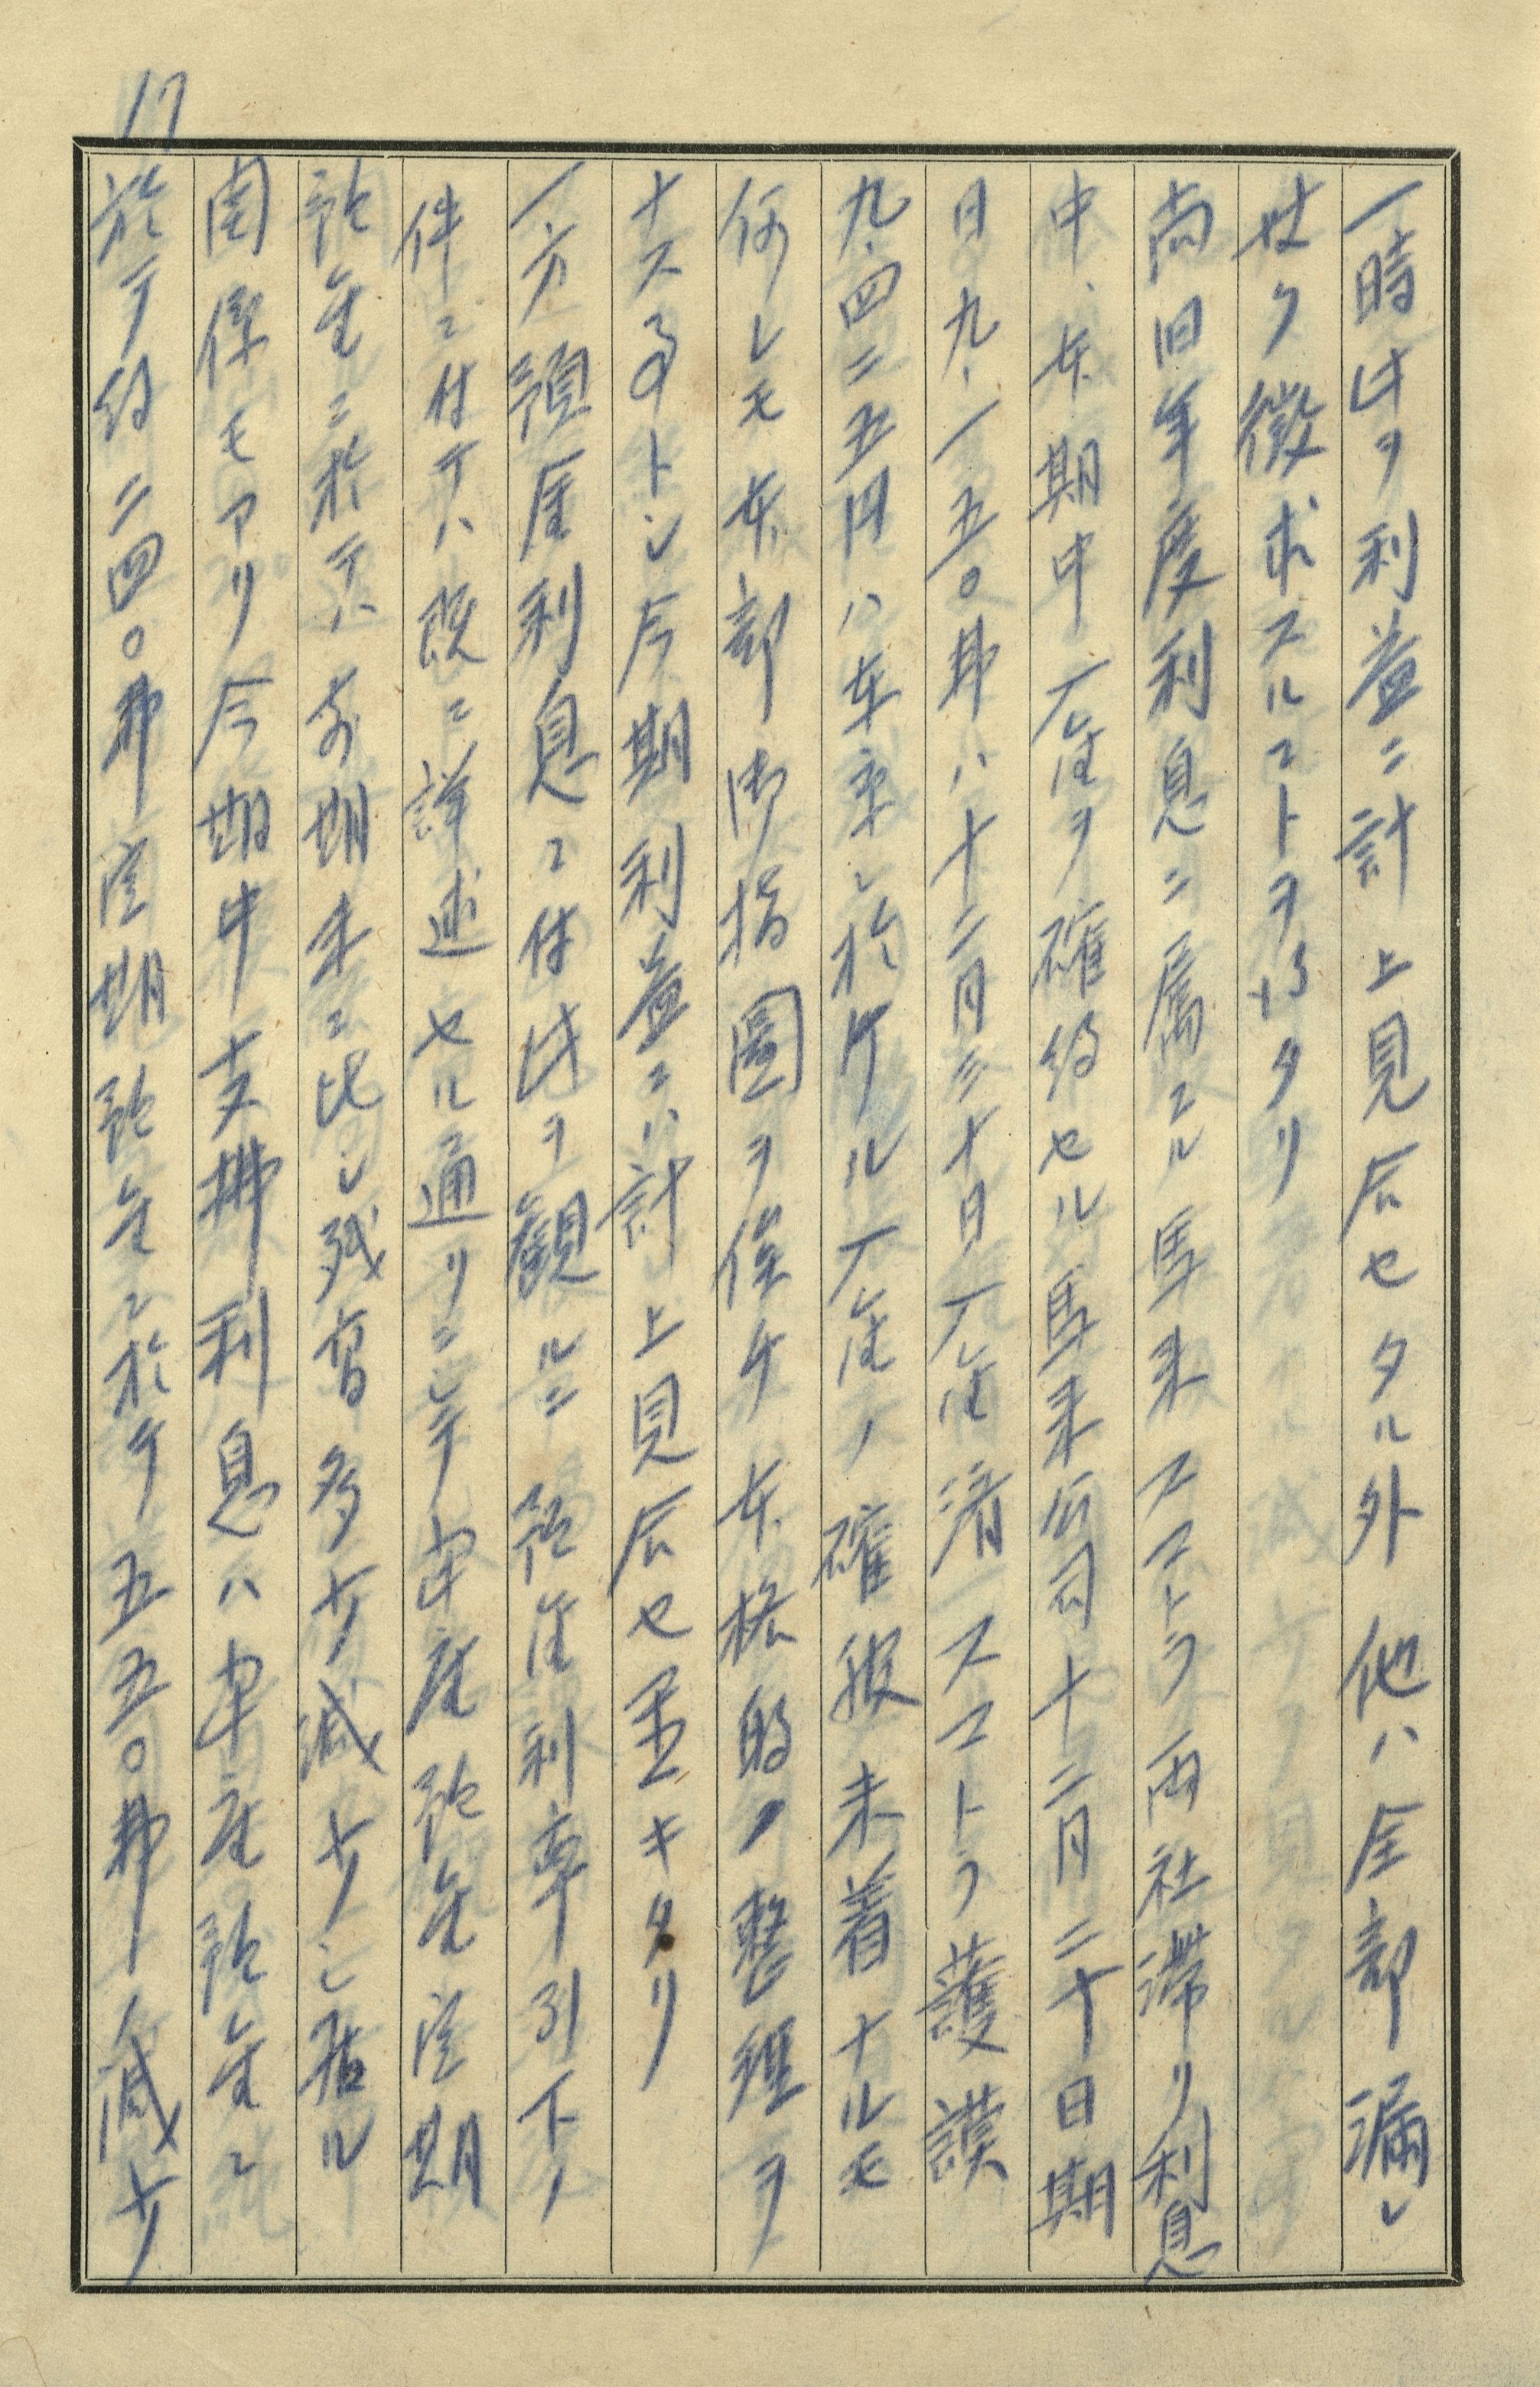 17
一時此ヲ利益ニ計上見仄セタル外他ハ全部漏レ
ナク徴求スルコトヲ得タリ
尚旧年度利息ニ属スル馬来スマトラ両社滞リ利息
中、本期中入金ヲ確約セル馬来公司十二月二十日期
日九、一五〇弗ハ十二月三十日入金済スマトラ護謨
九、四二五円ハ東京ニ於ケル入金ノ確報未着ナルモ
何レモ本部御指図ヲ俟チ本格的ノ整理ヲ
ナス事トシ今期利益ニハ計上見仄セ置キタリ
一方預金利息ニ付此ヲ観ルニ預金利率引下ノ
件ニ付テハ既ニ詳述セル通リニシテ当座預金定期
預金ニ於テハ前期末ニ比シ残高多少減少シ居ル
関係モアリ今期中支払利息ハ当座預金ニ
於テ約二四〇弗定期預金ニ於テ五五〇弗減少